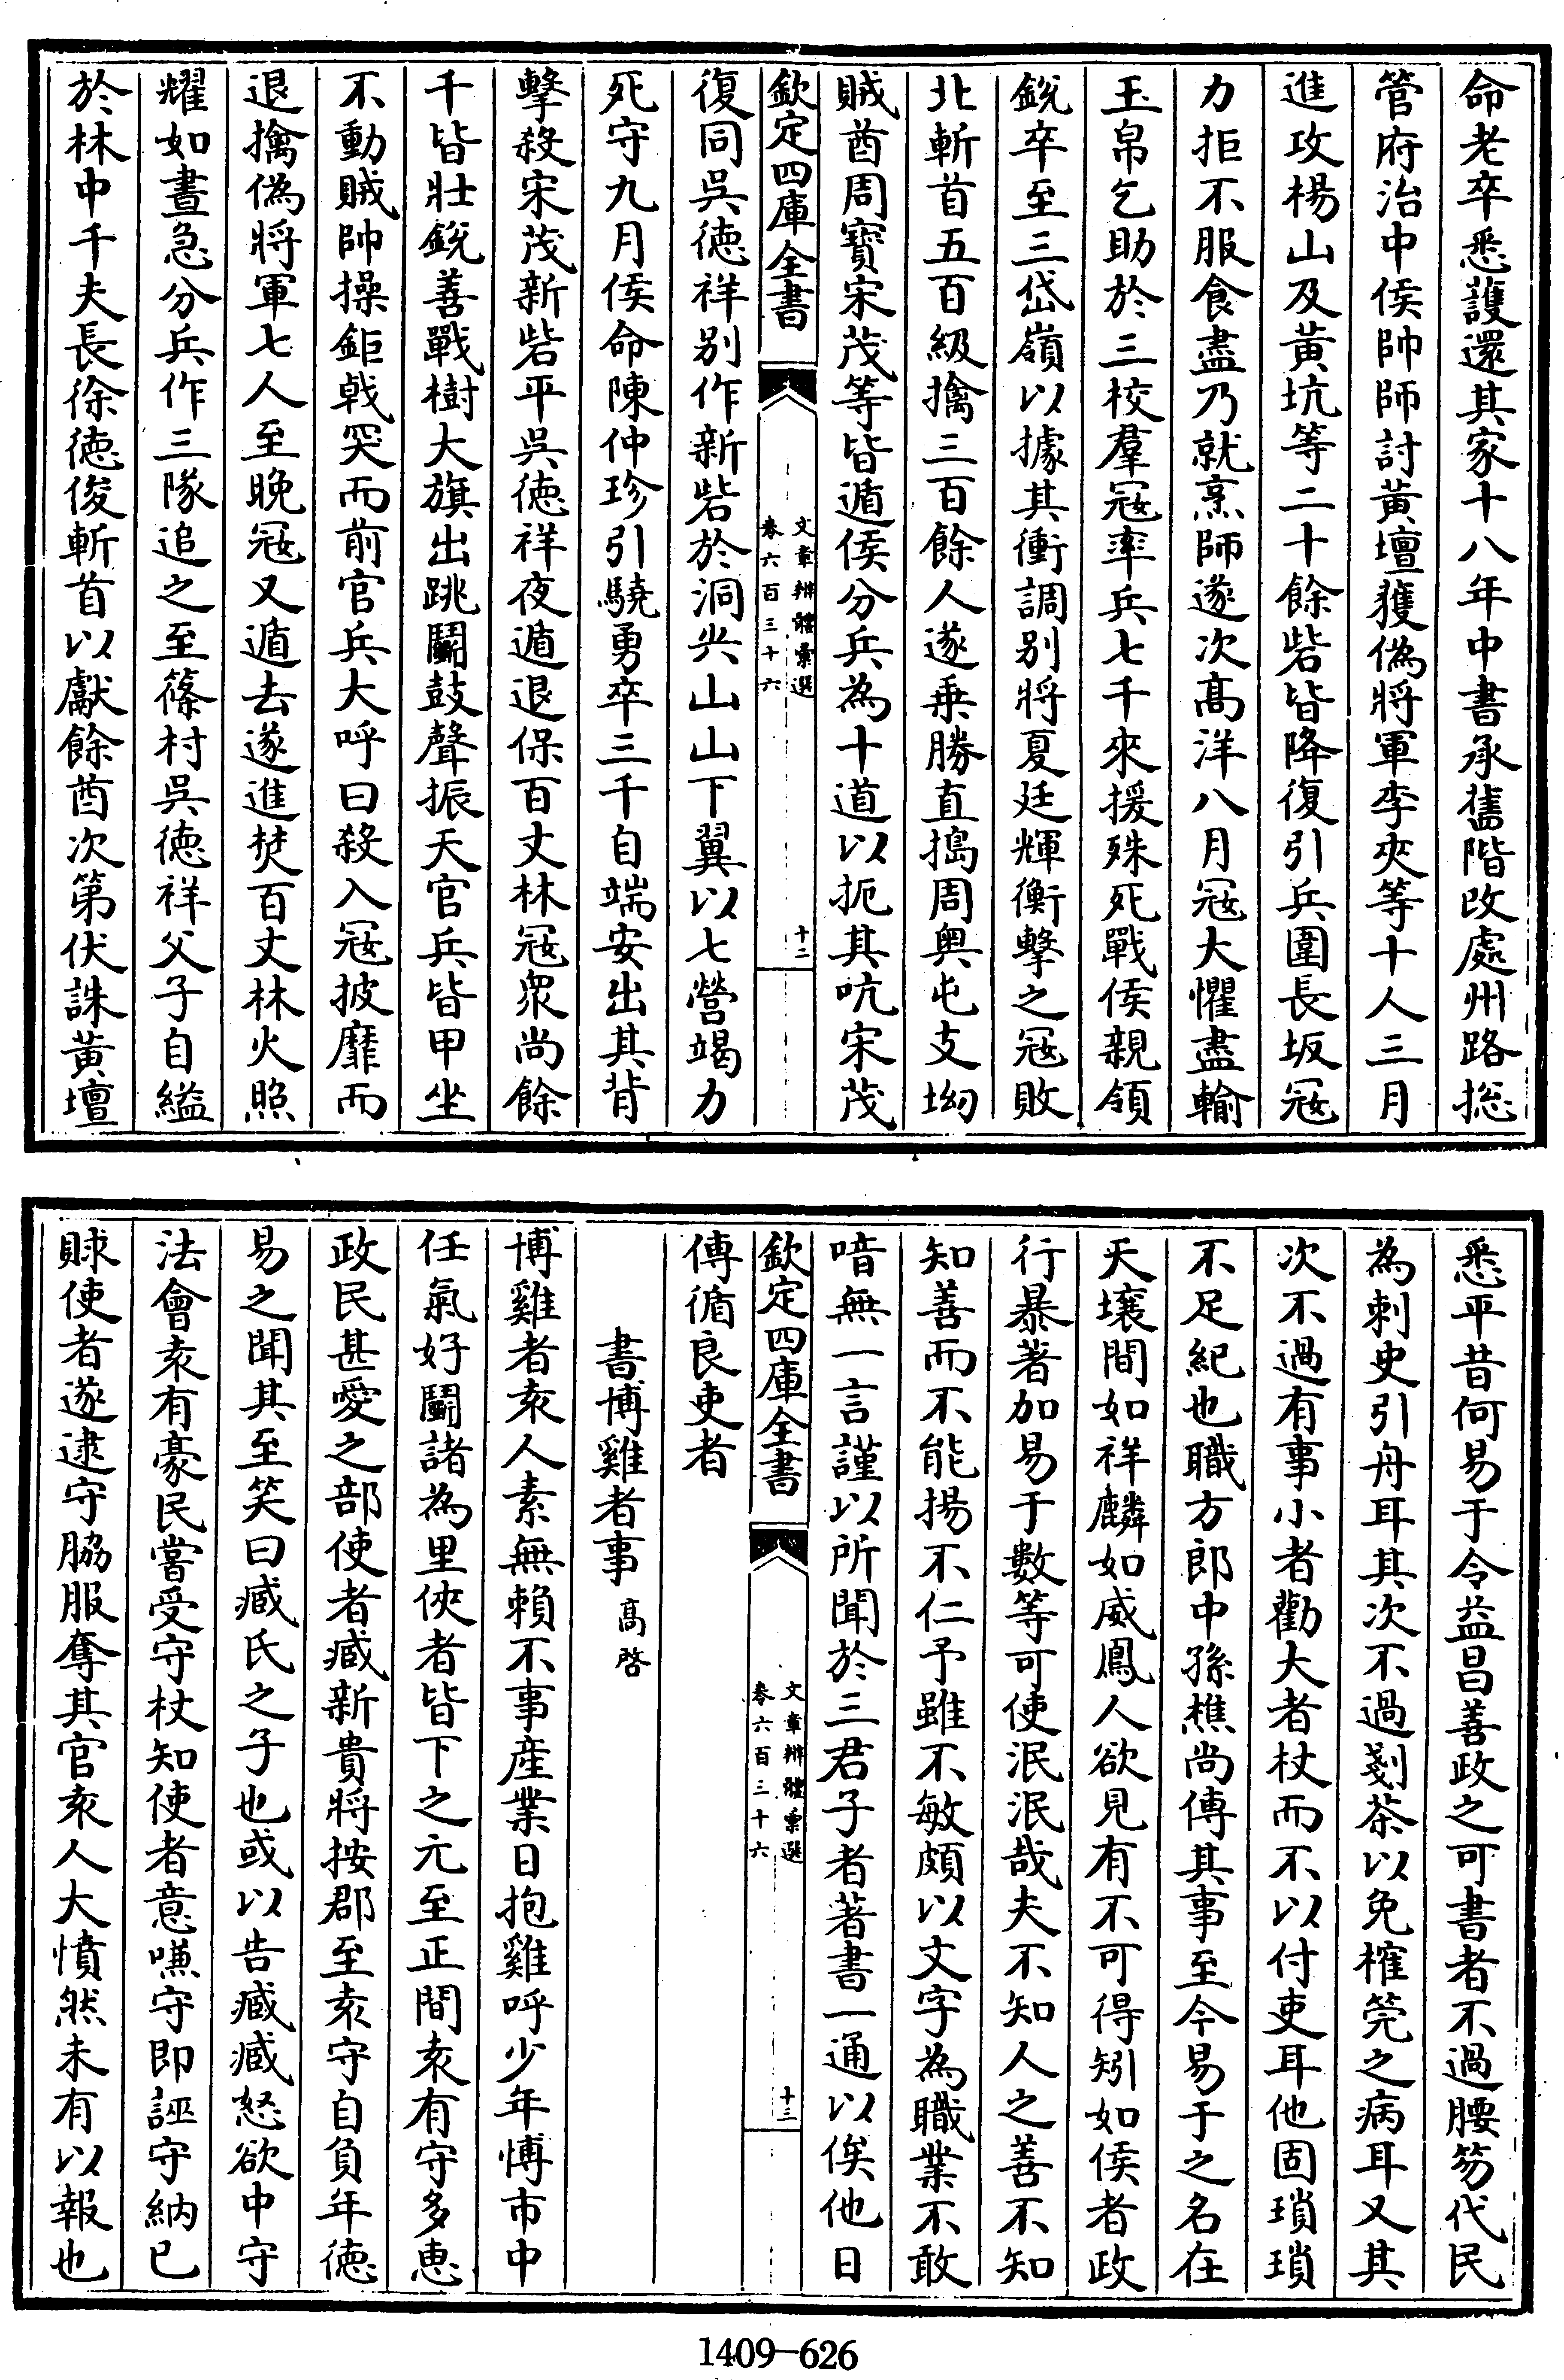 命老卒悉護還其家十八年中書承舊階改處州路捴
管府治中侯帥師討黃壇獲偽將軍李夾等十人三月
進攻楊山及黃坑等二十餘砦皆降復引兵圍長坂冦
力拒不服食盡乃就烹師遂次髙洋八月冦大懼盡輸
玉帛乞助於三校羣冦率兵七千來援殊死戰侯親領
銳卒至三岱嶺以據其衝調别將夏廷輝衡擊之冦敗
北斬首五百級擒三百餘人遂乗勝直搗周奥屯支坳
賊酋周寳宋茂等皆遁侯分兵為十道以扼其吭宋茂
欽定四庫全書
文章辨體彙選
卷六百三十六
十二
復同吳徳祥别作新砦於洞尖山山下翼以七營竭力
死守九月侯命陳仲珍引驍勇卒三千自端安出其背
擊殺宋茂新砦平吳徳祥夜遁退保百丈林冦衆尚餘
千皆壯銳善戰樹大旗出跳鬭鼓聲振天官兵皆甲坐
不動賊帥操鉅戟突而前官兵大呼曰殺入冦披靡而
退擒偽將軍七人至晚冦又遁去遂進焚百丈林火照
耀如晝急分兵作三隊追之至篠村吳徳祥父子自縊
於林中千夫長徐徳俊斬首以獻餘酋次第伏誅黃壇
悉平昔何易于令益昌善政之可書者不過腰笏代民
為刺史引舟耳其次不過剗茶以免榷筦之病耳又其
次不過有事小者勸大者杖而不以付吏耳他固瑣瑣
不足紀也職方郎中孫樵尚傳其事至今易于之名在
天壤間如祥麟如威鳳人欲見有不可得矧如侯者政
行暴著加易于數等可使泯泯哉夫不知人之善不知
知善而不能揚不仁予雖不敏頗以文字為職業不敢
喑無一言謹以所聞於三君子者著書一通以俟他日
欽定四庫全書
文章辨體彙選
卷六百三十六
十三
傳循良吏者
書博雞者事 髙啓
博雞者袁人素無賴不事産業日抱雞呼少年博市中
任氣好鬭諸為里俠者皆下之元至正間袁有守多恵
政民甚愛之部使者臧新貴將按郡至袁守自負年徳
易之聞其至笑曰臧氏之子也或以告臧臧怒欲中守
法會袁有豪民嘗受守杖知使者意嗛守即誣守納已
賕使者遂逮守脇服奪其官袁人大憤然未有以報也
1409—626